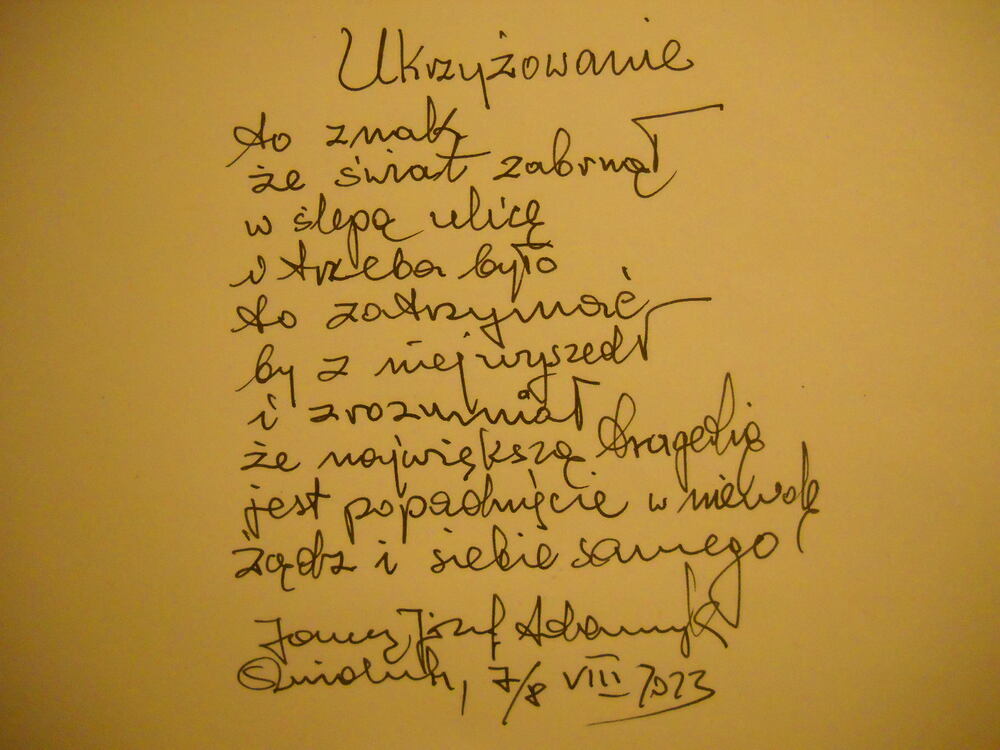 Ukrzyżowanie
to znak
że świat zabrnął
w ślepą ulicę
i trzeba było
to zatrzymać
by z niej wyszedł
i zrozumiał
że największą tragedią
jest popadnięcie w niewolę
żądz i siebie samego
Józef
7/8 VIII 2023